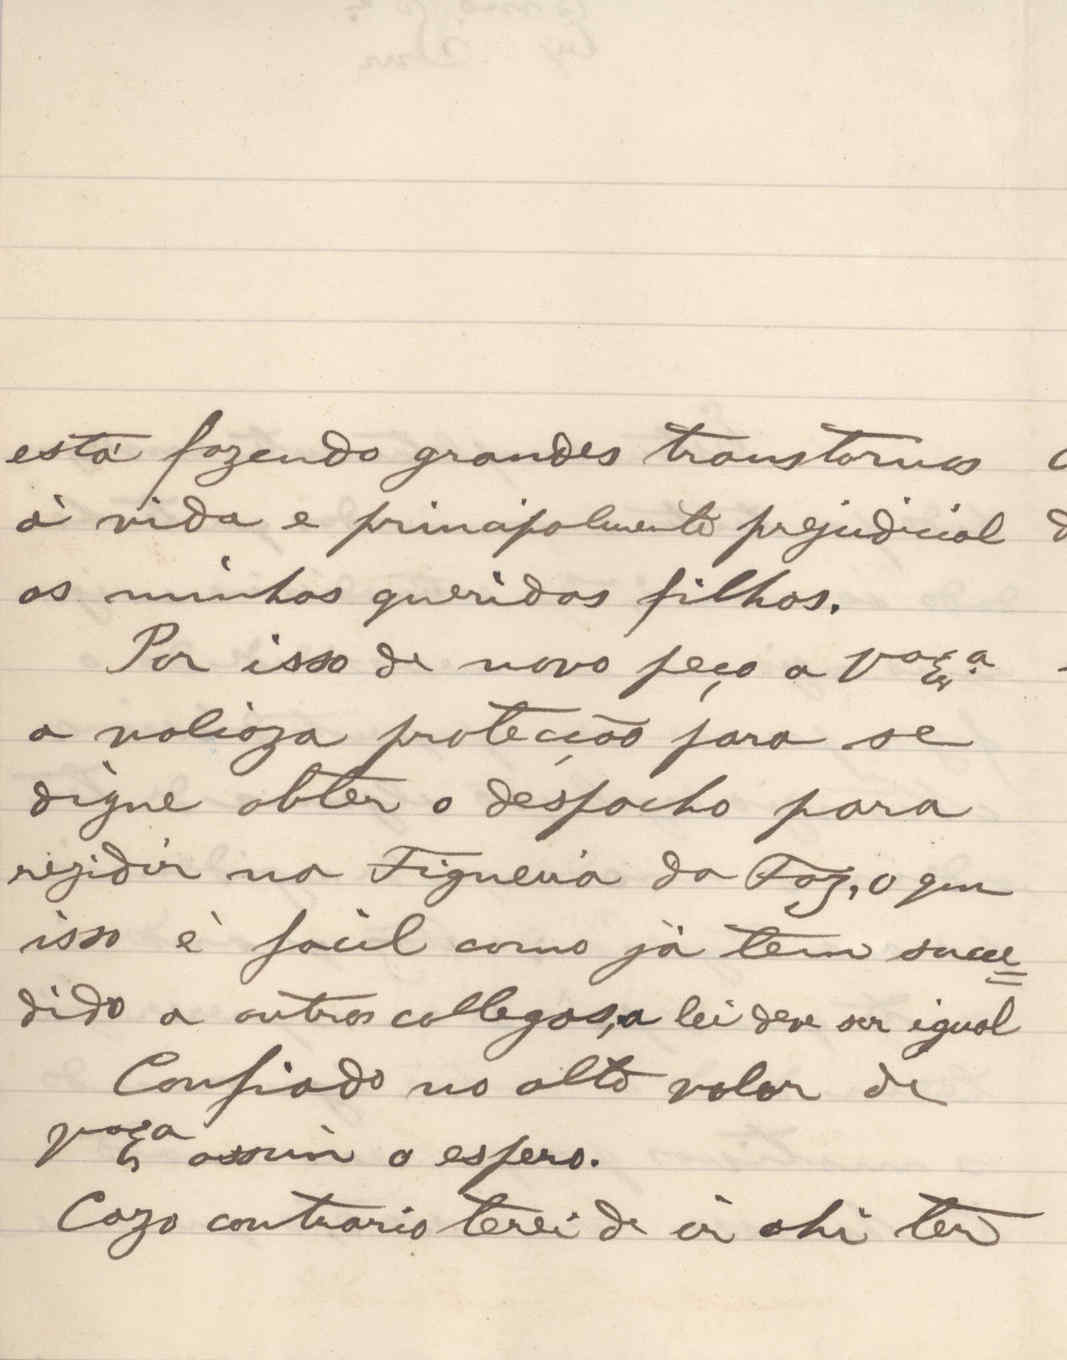 está fazendo grandes transtornos
á vida e principalmente prejudicial
os minhos queridos filhos.
Por isso de novo peço a Vossa
a valioza protecção para se
digne obter o despacho para
rezidir na Figueira da Foz, o que
isso é facil como já tem suce=
dido a outros collegas, a lei deve ser igual
Confiado no alto valor de
assim o espero.
Cazo contrario terei de ir ahi ter